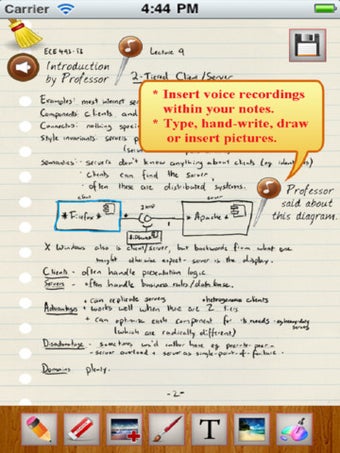 Carrier 4:44 PM
ECE 493-T5 Lecture 9
Introduction
by Professor
2-Tiered Client/Server
Examples: most internet
Components: clients and
Connectors: nothing
style invariants: servers
* Insert voice recordings
within your notes.
* Type, hand-write, draw
or insert pictures.
semantics - servers don't know anything about clients (eg identities)
clients can find the server,
often these are distributed systems.
Professor
said about
this diagram.
* Firefox *
* Apache *
X Windows also is client/server, but backwards from what one
might otherwise expect - server is the display.
Clients - often handle presentation logic.
Servers - often handle business rules/database.
Advantages + can replicate servers
+ works well when there are 2 tiers
+ can optimize each component for its needs
(which are radically different)
Disadvantage - sometimes we'd rather have eg peer-to-peer
- server overload + server as single-point-of-failure.
Domains plenty.
-2-
T